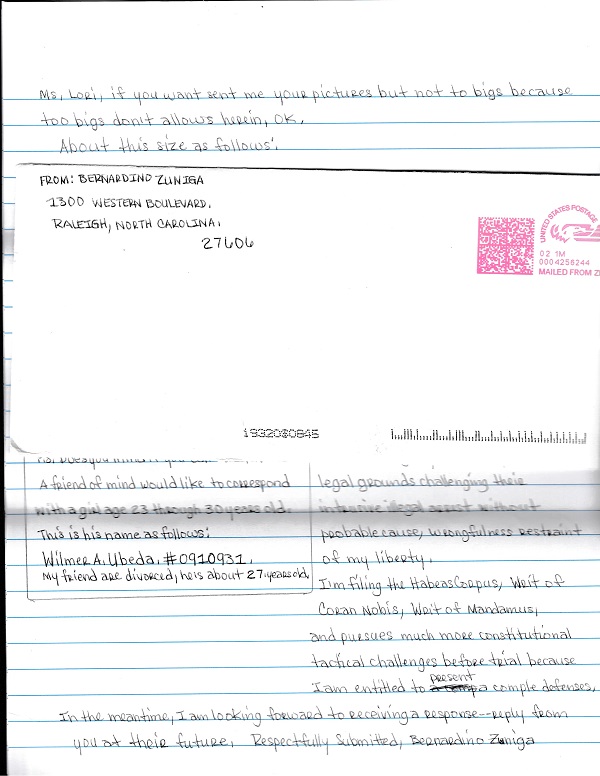 Ms, Lori, if you want sent me your pictures but not to bigs because
too bigs don't allows herein, OK,
About this size as follows:
FROM: BERNARDINO ZUNIGA
1300 WESTERN BOULEVARD,
RALEIGH, NORTH CAROLINA,
27606
UNITED STATES POSTAGE
02 1M
0004256244
MAILED FROM ZI
19320$0845
A friend of mind would like to correspond
with a girl age 23 through 30 years old.
This is his name as follows:
Wilmer A. Ubeda, #0910931,
My friend are divorced, he is about 27 years old,
legal grounds challenging their
intensive illegal arrest without
probable cause, wrongfulness restraint
of my liberty,
I'm filing the Habeas Corpus, Writ of
Coran Nobis, Writ of Mandamus,
and pursues much more constitutional
tactical challenges before trial because
I am entitled to present a comple defenses,
In the meantime, I am looking forward to receiving a response--reply from
you at their future, Respectfully Submitted, Bernardino Zuniga